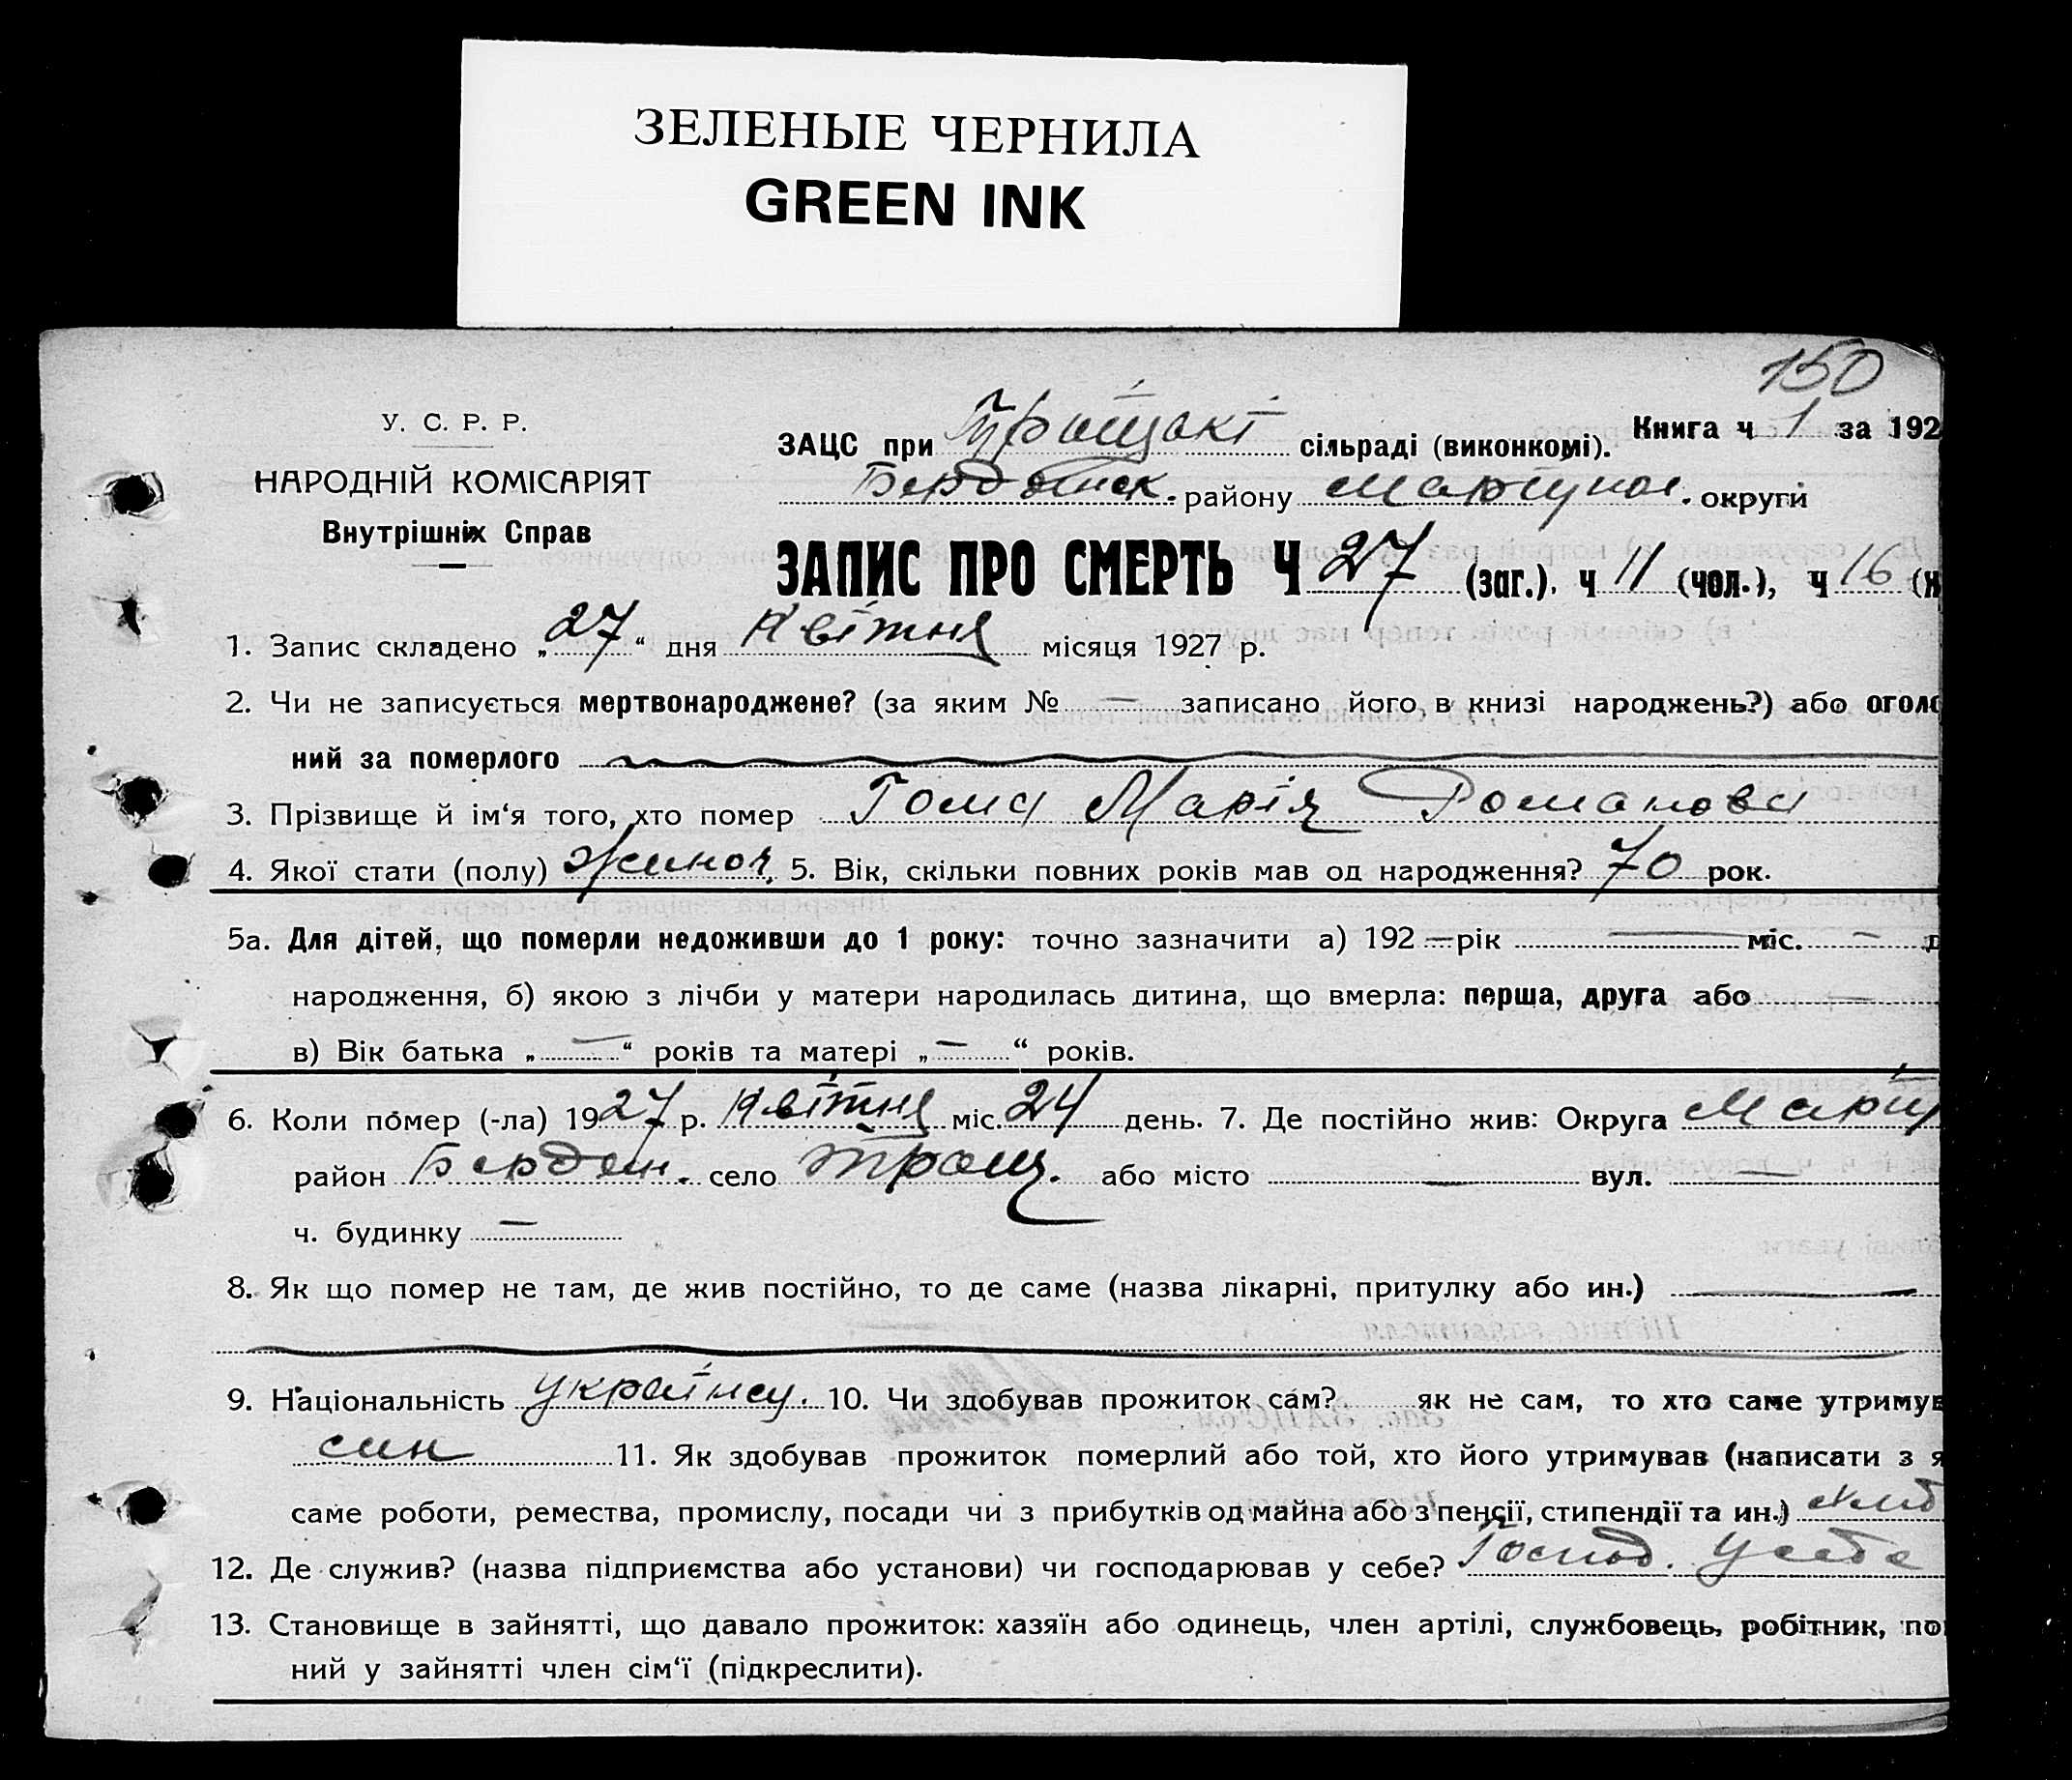 ЗЕЛЕНЫЕ ЧЕРНИЛА
GREEN INK
150
У. С. Р. Р.
НАРОДНІЙ КОМІСАРІЯТ
Внутрішніх Справ
ЗАЦС при сільраді (виконкомі). Книга ч 1 за 192
району округи
ЗАПИС ПРО СМЕРТЬ Ч 27 (заг.). ч 11 (чол.), ч 16
1. Запис складено „27“ дня Квітня місяця 1927 р.
2. Чи не записується мертвонароджене? (за яким № — записано його в книзі народжень?) або оголо
ний за померлого
3. Прізвище й ім‘я того, хто помер Гома Марія Романова
4. Якої стати (полу) жиноч. 5. Вік, скільки повних років мав од народження? 70 рок.
5а. Для дітей, що померли недоживши до 1 року: точно зазначити а) 192 — рік — міс. —
народження, б) якою з лічби у матери народилась дитина, що вмерла: перша, друга або —
в) Вік батька „—“ років та матері „—“ років.
6. Коли помер (-ла) 1927 р. Квітня міс. 24 день. 7. Де постійно жив: Округа Маріу
район Бердян. село Троїц. або місто — вул. —
ч. будинку —
8. Як що помер не там, де жив постійно, то де саме (назва лікарні, притулку або ин.) —
9. Національність україн 10. Чи здобував прожиток сам? як не сам, то хто саме утримув
син 11. Як здобував прожиток померлий або той, хто його утримував (написати з я
саме роботи, ремества, промислу, посади чи з прибутків од майна або з пенсії, стипендії та ин.) хліб
12. Де служив? (назва підприємства або установи) чи господарював у себе? Господ. у себе
13. Становище в зайнятті, що давало прожиток: хазяїн або одинець, член артілі, службовець, робітник, по
ний у зайнятті член сім‘ї (підкреслити).